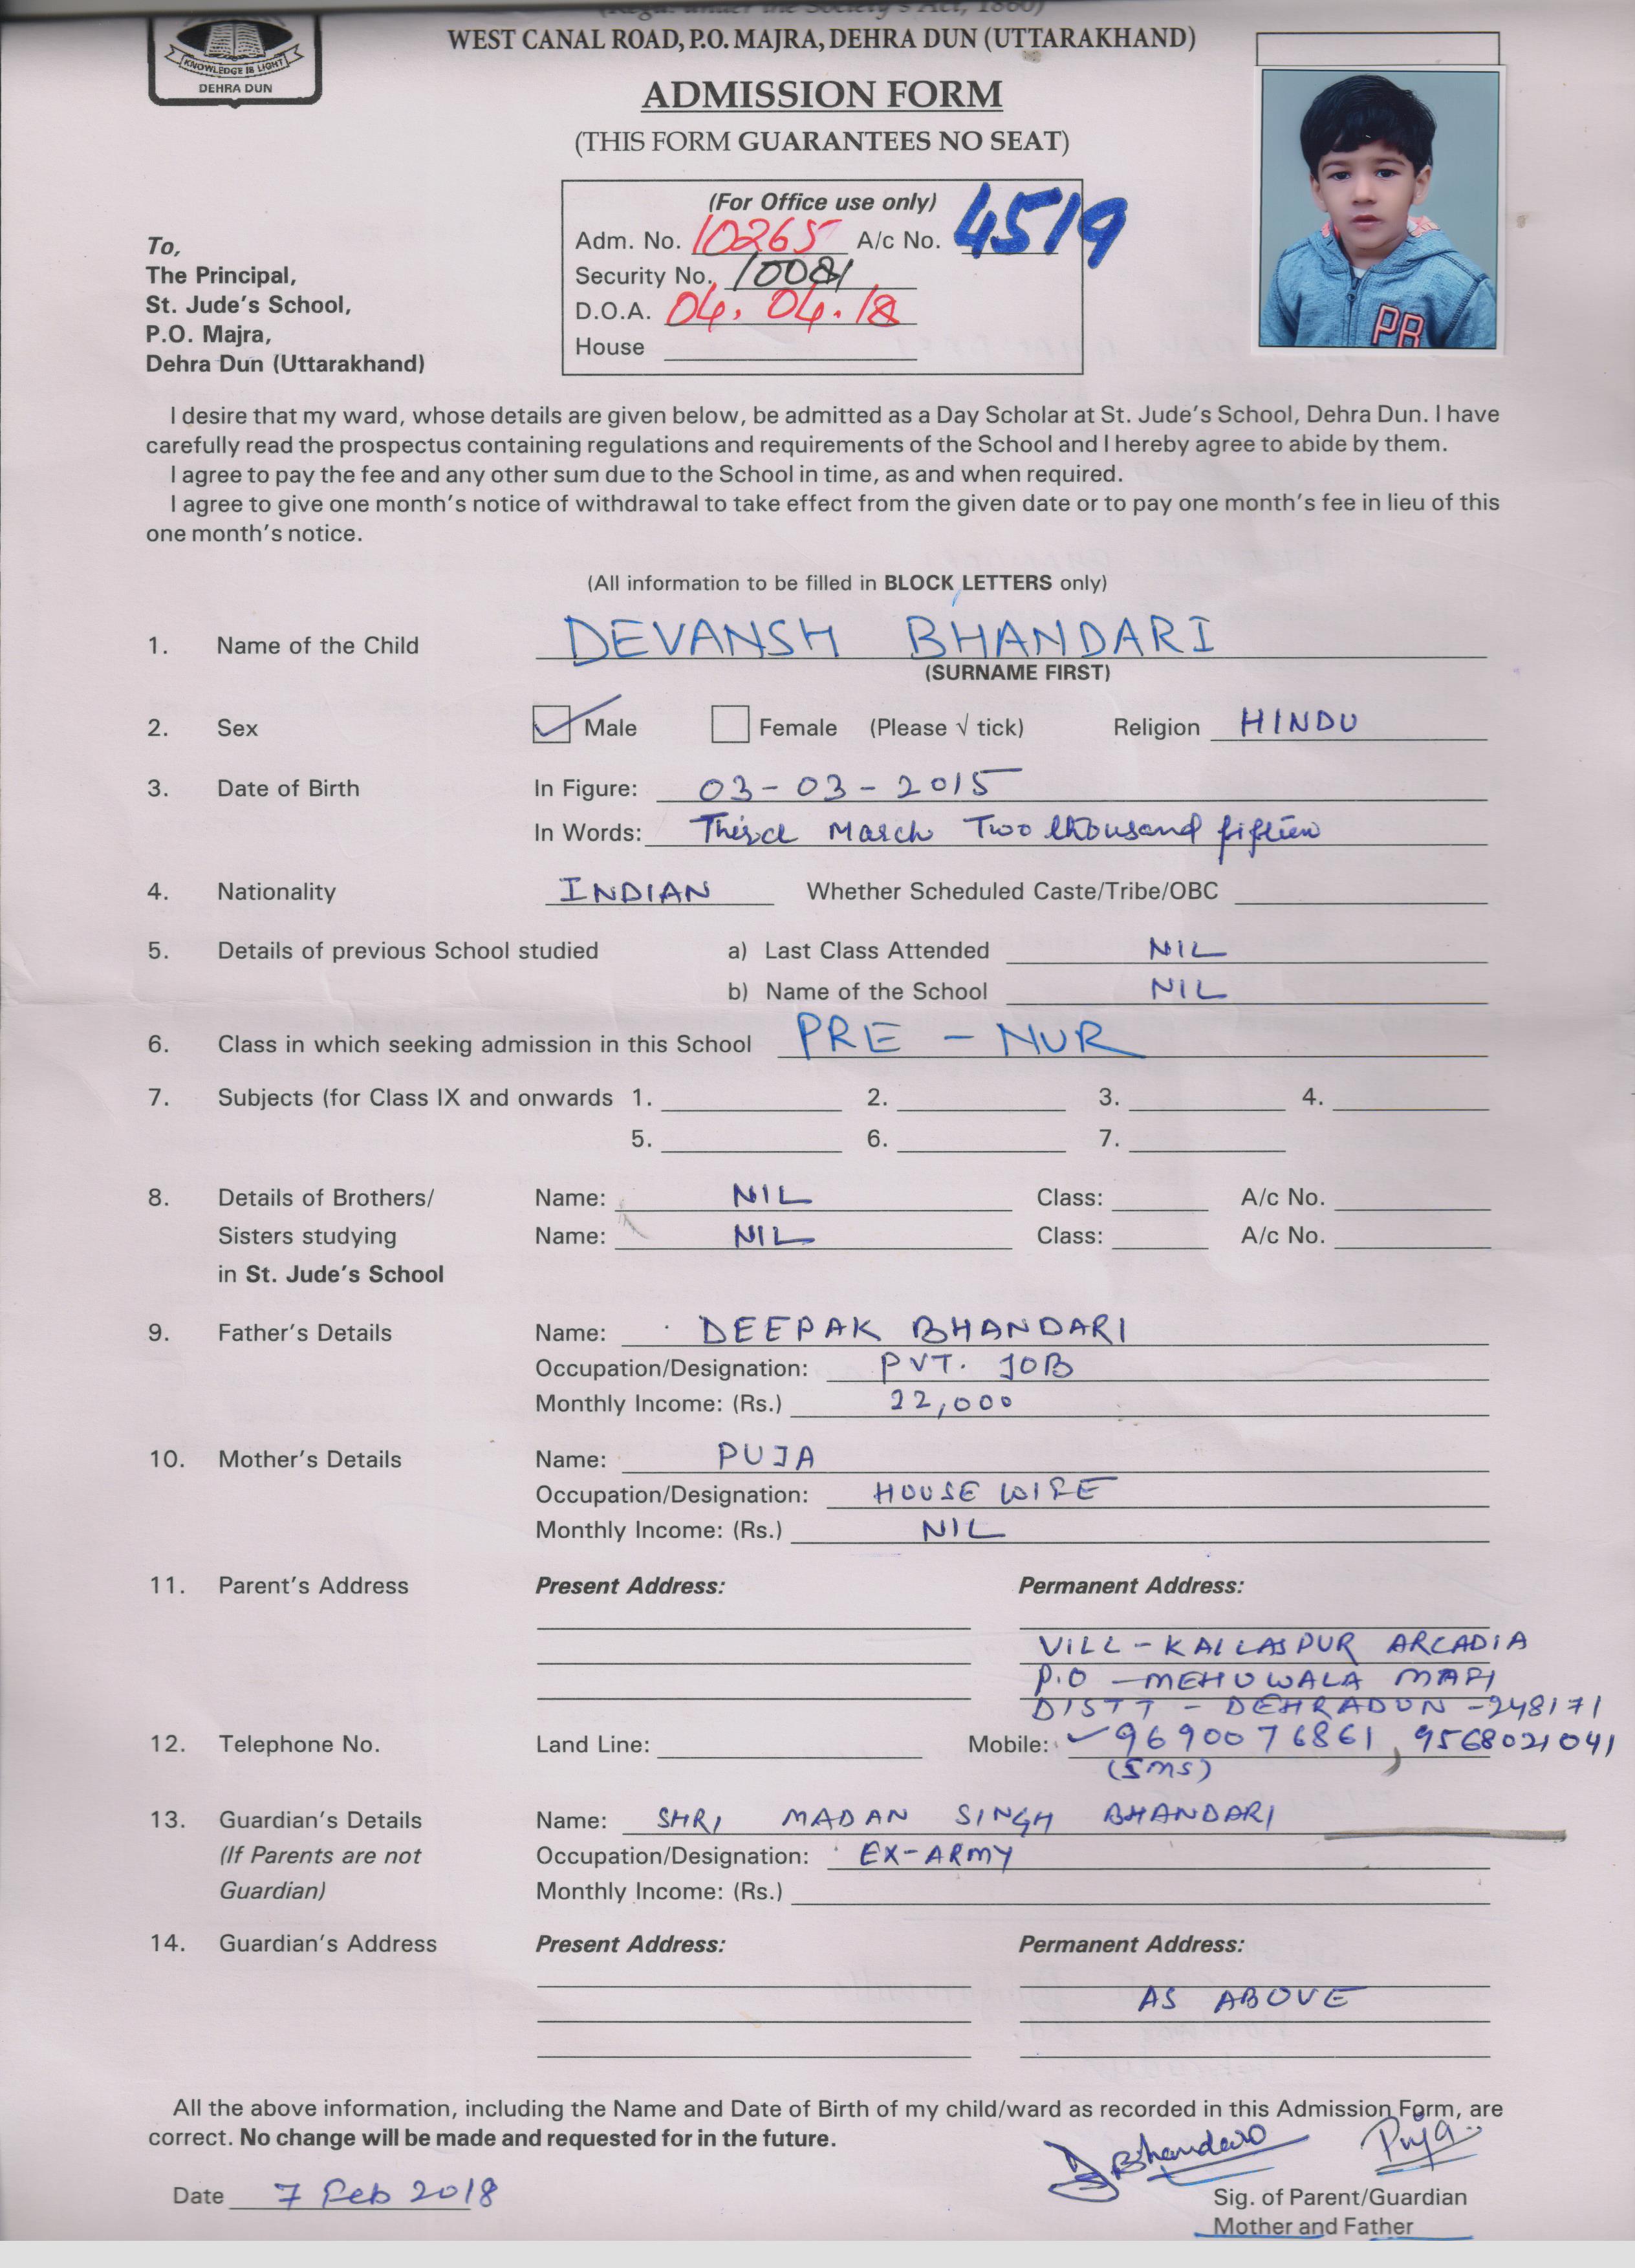 (Regd. under the Society's Act, 1860)
WEST CANAL ROAD, P.O. MAJRA, DEHRA DUN (UTTARAKHAND)
KNOWLEDGE IS LIGHT
DEHRA DUN
ADMISSION FORM
(THIS FORM GUARANTEES NO SEAT)
(For Office use only)
Adm. No. 10265 A/c No. 4519
Security No. 10081
D.O.A. 04. 04. 18
House
To,
The Principal,
St. Jude's School,
P.O. Majra,
Dehra Dun (Uttarakhand)
PB
I desire that my ward, whose details are given below, be admitted as a Day Scholar at St. Jude's School, Dehra Dun. I have
carefully read the prospectus containing regulations and requirements of the School and I hereby agree to abide by them.
I agree to pay the fee and any other sum due to the School in time, as and when required.
I agree to give one month's notice of withdrawal to take effect from the given date or to pay one month's fee in lieu of this
one month's notice.
(All information to be filled in BLOCK LETTERS only)
1. Name of the Child DEVANSH BHANDARI
(SURNAME FIRST)
2. Sex Male Female (Please √ tick) Religion HINDU
3. Date of Birth In Figure: 03-03-2015
In Words: Third March Two thousand fifteen
4. Nationality INDIAN Whether Scheduled Caste/Tribe/OBC
5. Details of previous School studied a) Last Class Attended NIL
b) Name of the School NIL
6. Class in which seeking admission in this School PRE - NUR
7. Subjects (for Class IX and onwards 1. 2. 3. 4.
5. 6. 7.
8. Details of Brothers/ Name: NIL Class: A/c No.
Sisters studying Name: NIL Class: A/c No.
in St. Jude's School
9. Father's Details Name: DEEPAK BHANDARI
Occupation/Designation: PVT. JOB
Monthly Income: (Rs.) 22,000
10. Mother's Details Name: PUJA
Occupation/Designation: HOUSE WIFE
Monthly Income: (Rs.) NIL
11. Parent's Address Present Address: Permanent Address:
VILL - KAILASPUR ARCADIA
P.O - MEHUWALA MAFI
DISTT - DEHRADUN - 248171
12. Telephone No. Land Line: Mobile: 9690076861, 9568021041
(SMS)
13. Guardian's Details Name: SHRI MADAN SINGH BHANDARI
(If Parents are not Occupation/Designation: EX-ARMY
Guardian) Monthly Income: (Rs.)
14. Guardian's Address Present Address: Permanent Address:
AS ABOVE
All the above information, including the Name and Date of Birth of my child/ward as recorded in this Admission Form, are
correct. No change will be made and requested for in the future.
DBhandari Puja
Date 7 Feb 2018
Sig. of Parent/Guardian
Mother and Father